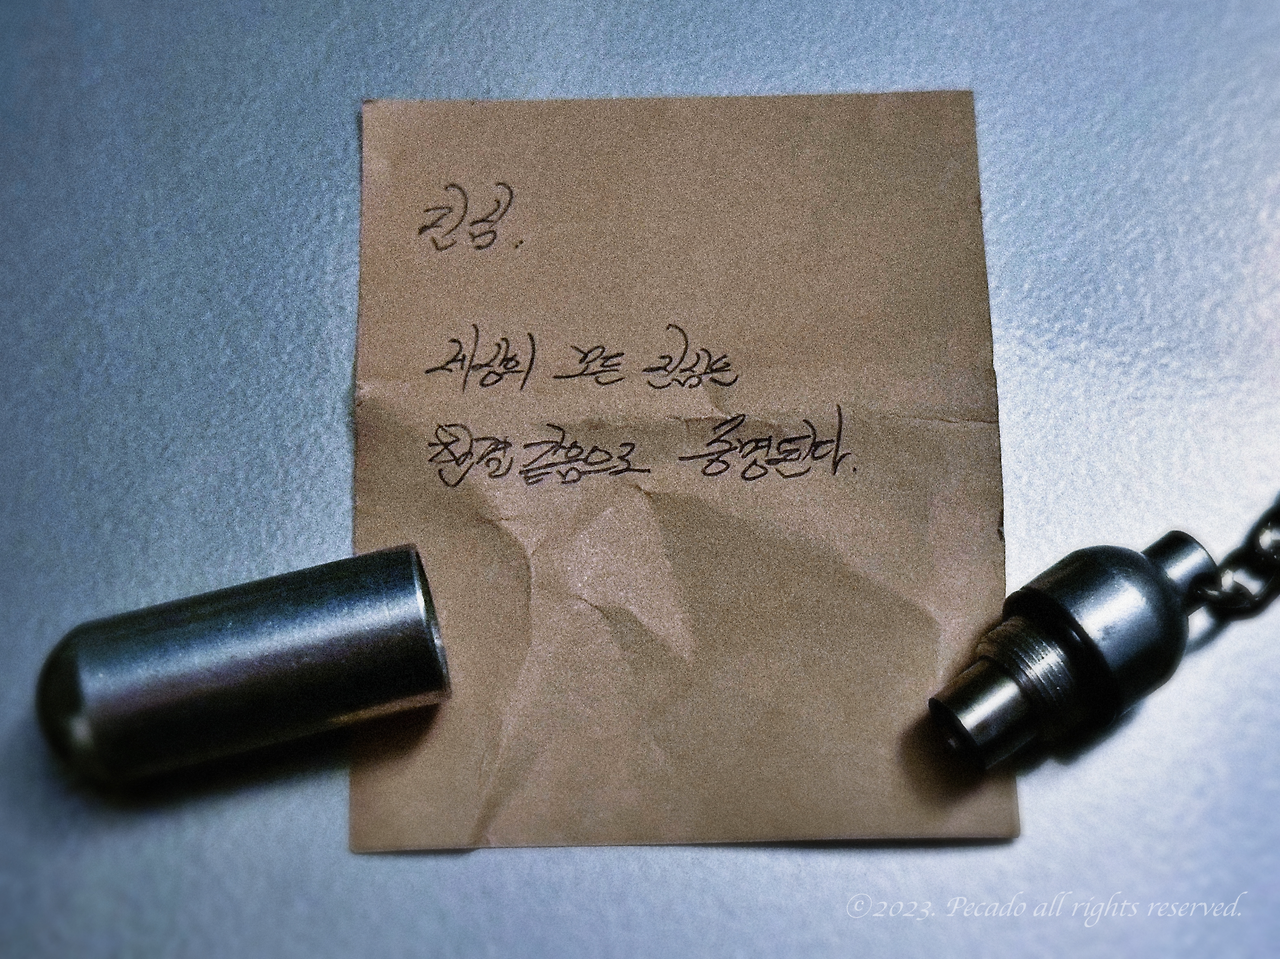 진심.
세상의 모든 진심은
한결같음으로 증명된다.
©2023. Pecado all rights reserved.